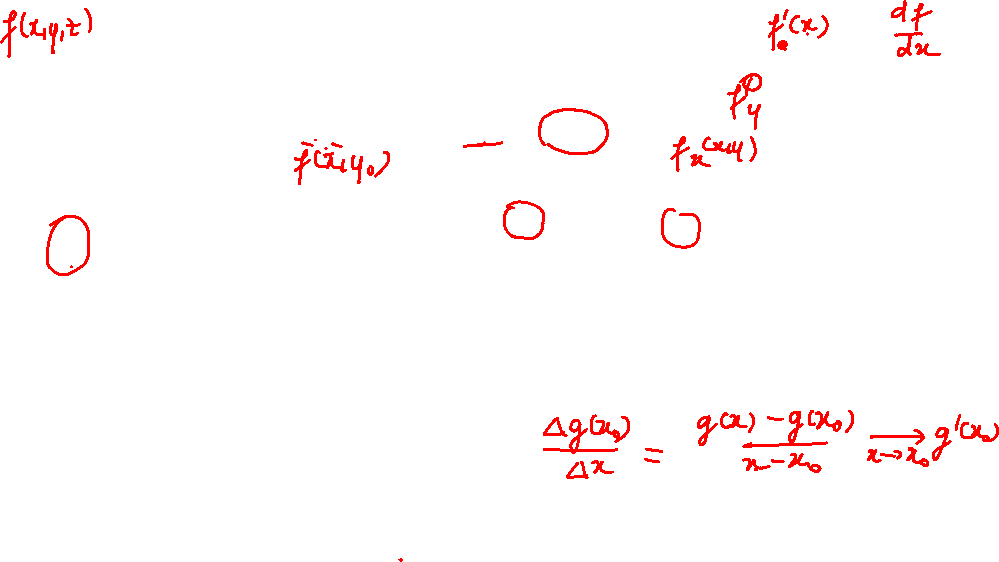 f(x,y,z)
f'(x) df/dx
f_y
f(x,y₀) — f_x(x,y)
Δg(x₀)/Δx = (g(x) - g(x₀))/(x - x₀) ⟶ g'(x₀)
x→x₀